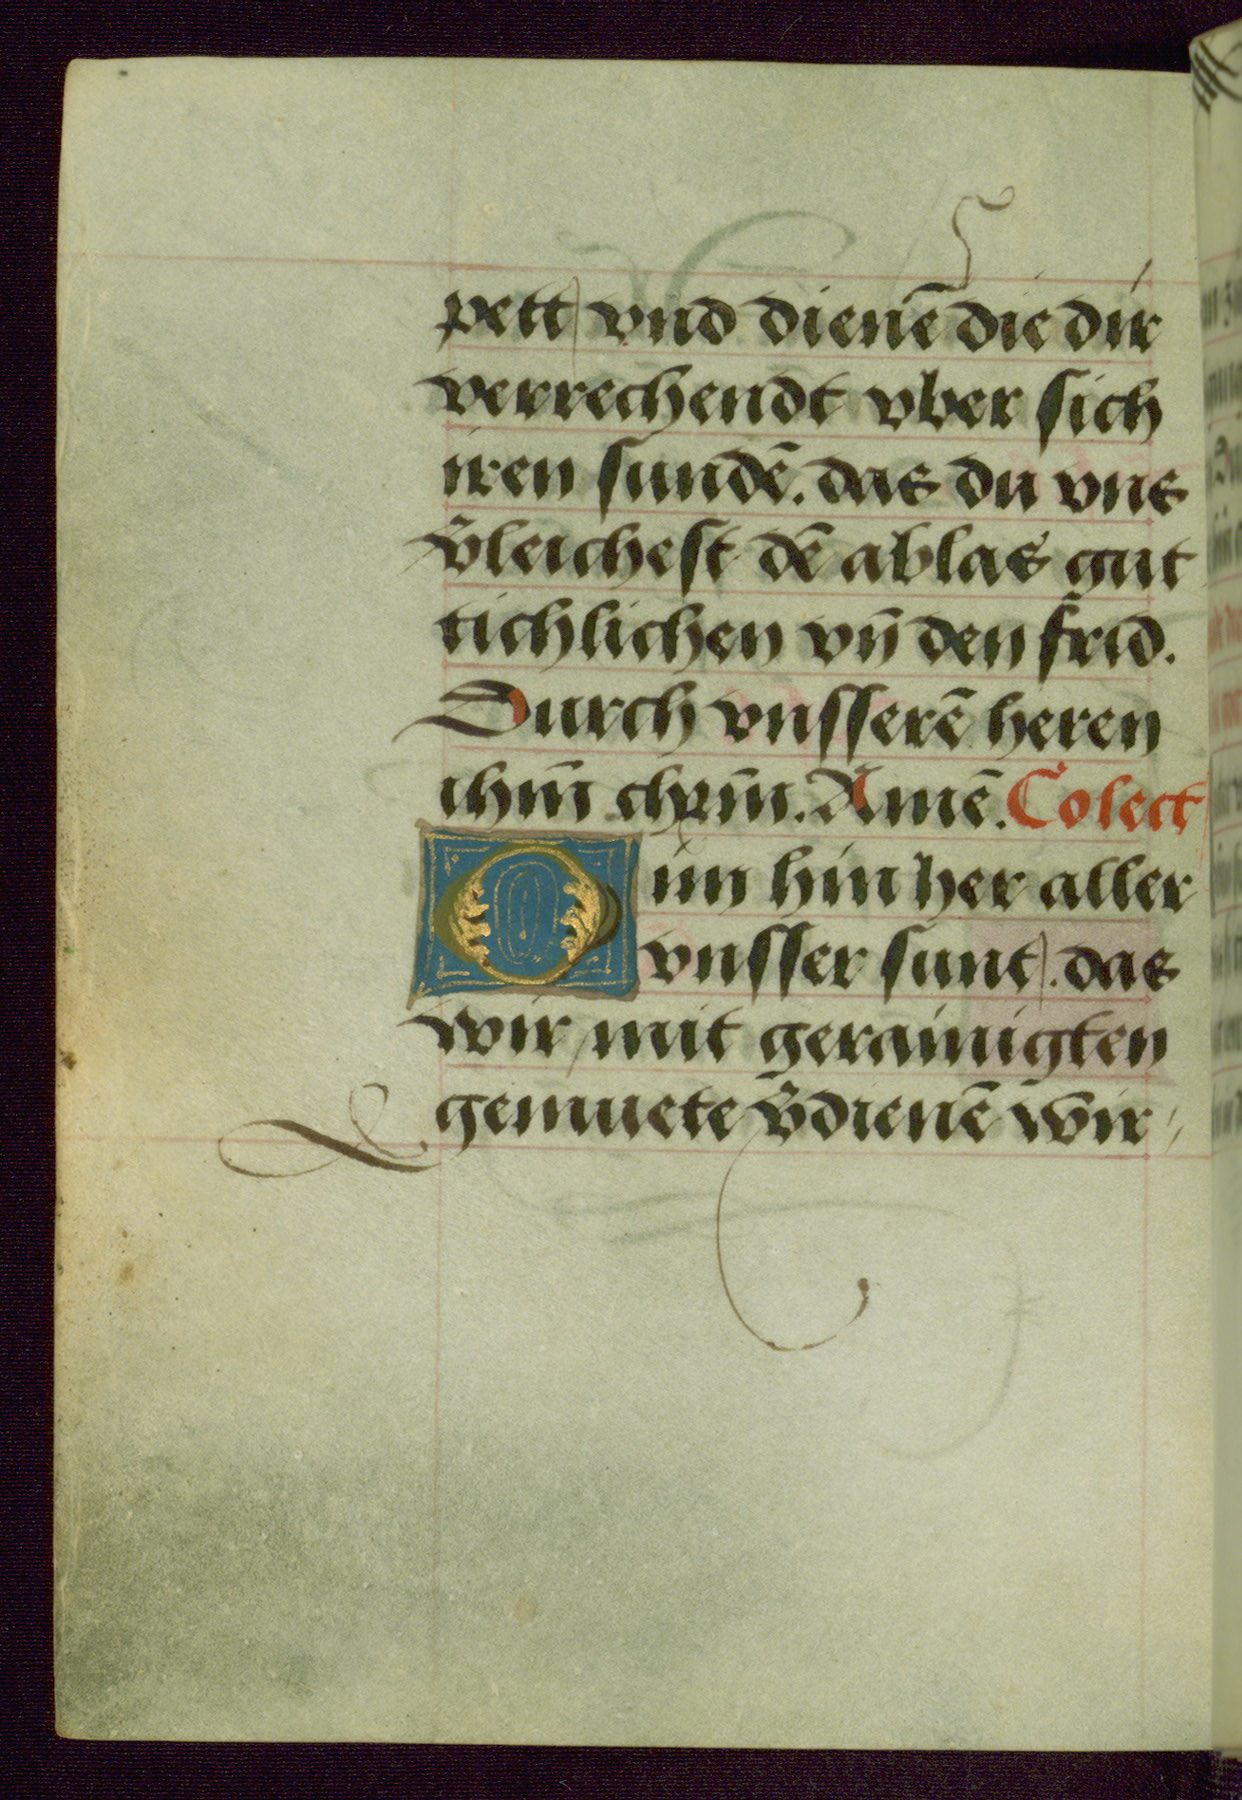 pett vnd dienē die dir
verrechendt vber sich
iren sundē. das du vns
v̄leichest dē ablas gut
tichlichen vn̄ den frid.
Durch vnsserē heren
ihm̄ chrm̄. Amē. Colect
im hin her aller
vnsser sunt. das
wir mit gerainigten
gemuete v̄dienē wir